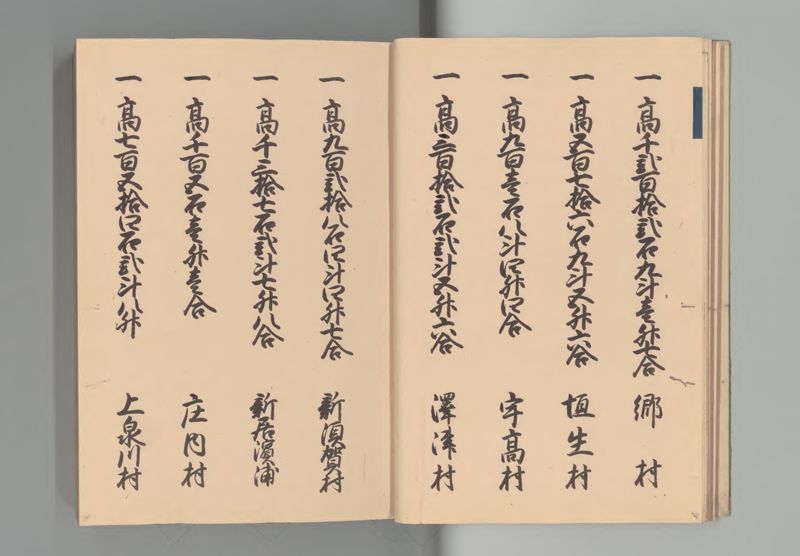 一 高千弐百拾弐石九斗壱升七合 郷村
一 高五百七拾六石九斗五升六合 垣生村
一 高九百壱石八斗四升四合 宇高村
一 高三百拾弐石弐斗五升六合 澤津村
一 高九百弐拾八石四斗四升七合 新須賀村
一 高千三拾七石弐斗七升八合 新居濱浦
一 高千百五石壱升壱合 庄内村
一 高七百五拾四石弐斗八升 上泉川村